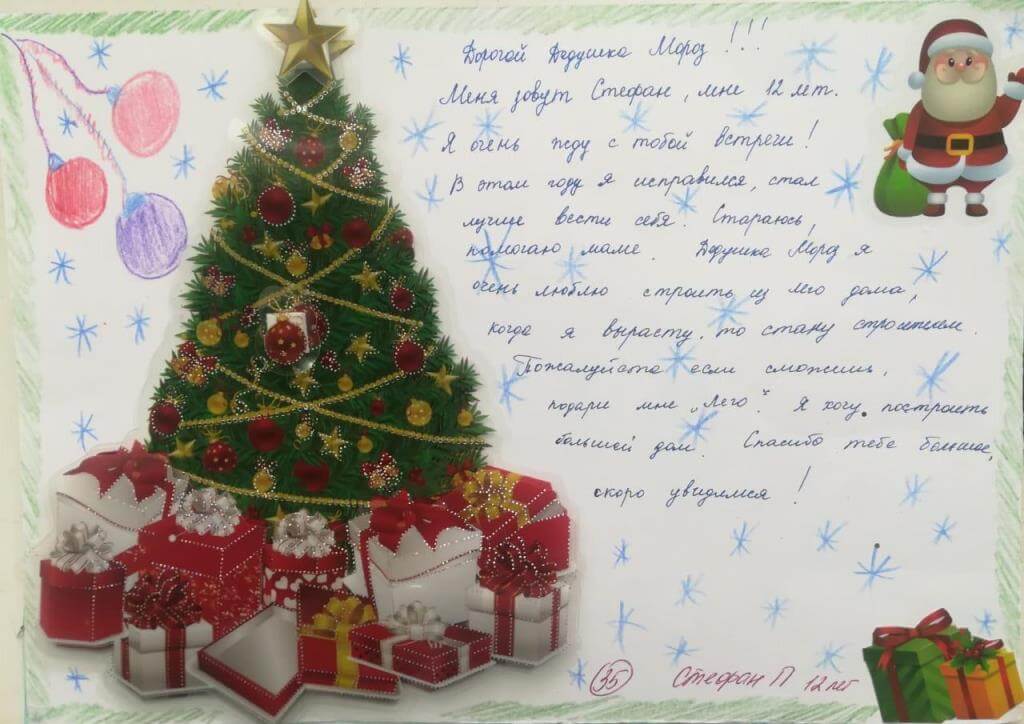 Дорогой Дедушка Мороз !!!
Меня зовут Стефан, мне 12 лет.
Я очень жду с тобой встречи!
В этом году я исправился, стал
лучше вести себя. Стараюсь,
помогаю маме. Дедушка Мороз я
очень люблю строить из лего дома,
когда я вырасту, то стану строителем.
Пожалуйста если сможешь,
подари мне „Лего". Я хочу построить
большей дом. Спасибо тебе большое,
скоро увидимся!
35 Стефан П 12 лет